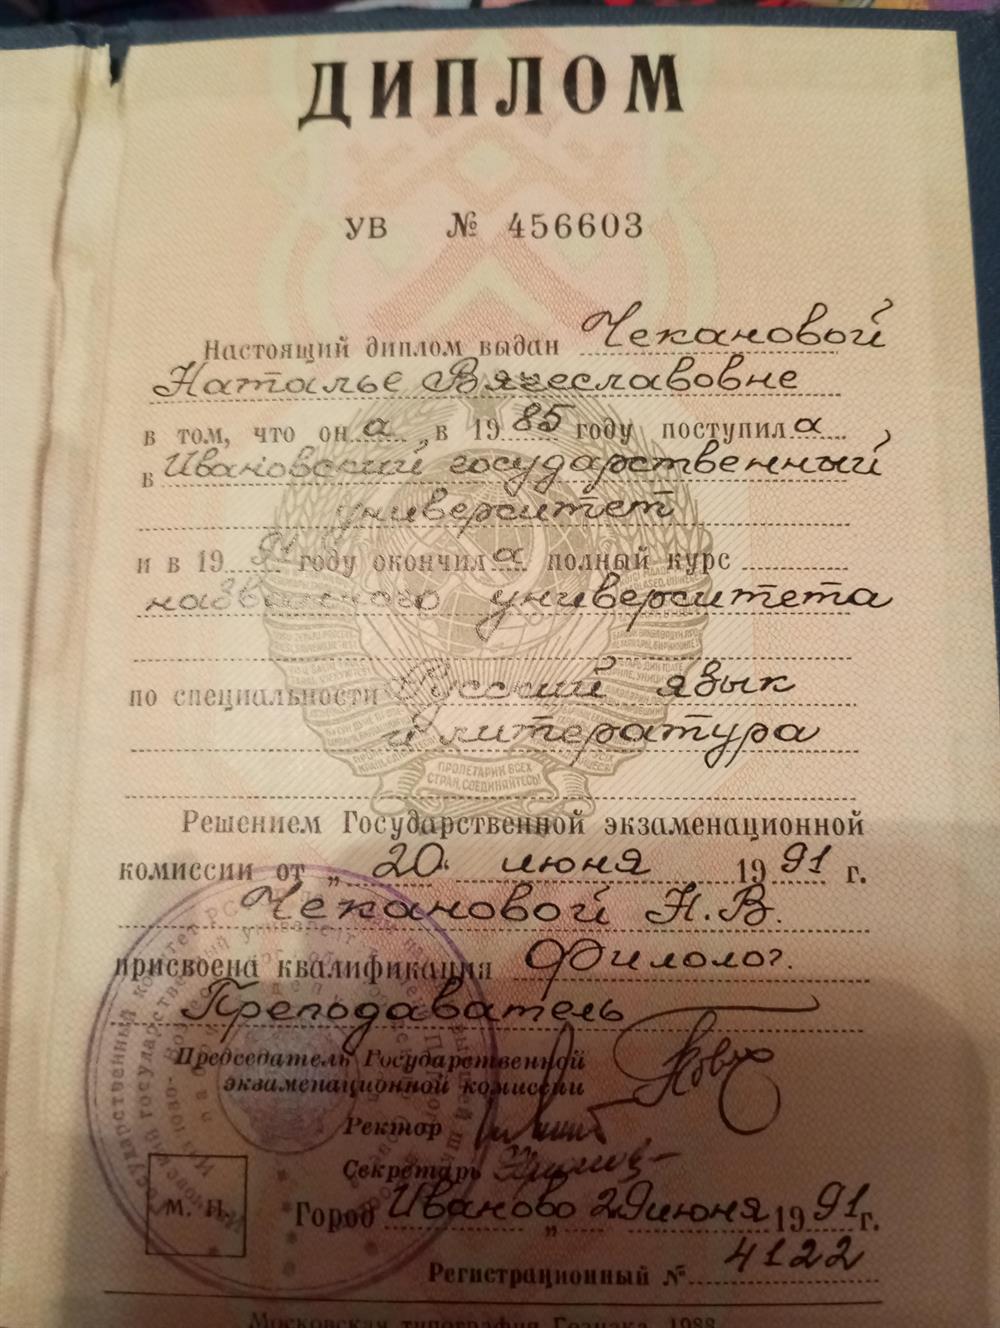 ДИПЛОМ
УВ № 456603
Настоящий диплом выдан Чекановой
Наталье Вячеславовне
в том, что она, в 1985 году поступила
в Ивановский государственный
университет
и в 1991 году окончила полный курс
названного университета
по специальности Русский язык
и литература
ПРОЛЕТАРИИ ВСЕХ
СТРАН, СОЕДИНЯЙТЕСЬ!
Решением Государственной экзаменационной
комиссии от „20“ июня 1991 г.
Чекановой Н.В.
присвоена квалификация Филолог.
Преподаватель
Председатель Государственной
экзаменационной комиссии
Ректор
Секретарь
М. П.
Город Иваново „29 июня 1991 г.
Регистрационный № 4122
Московская типография Гознака. 1988